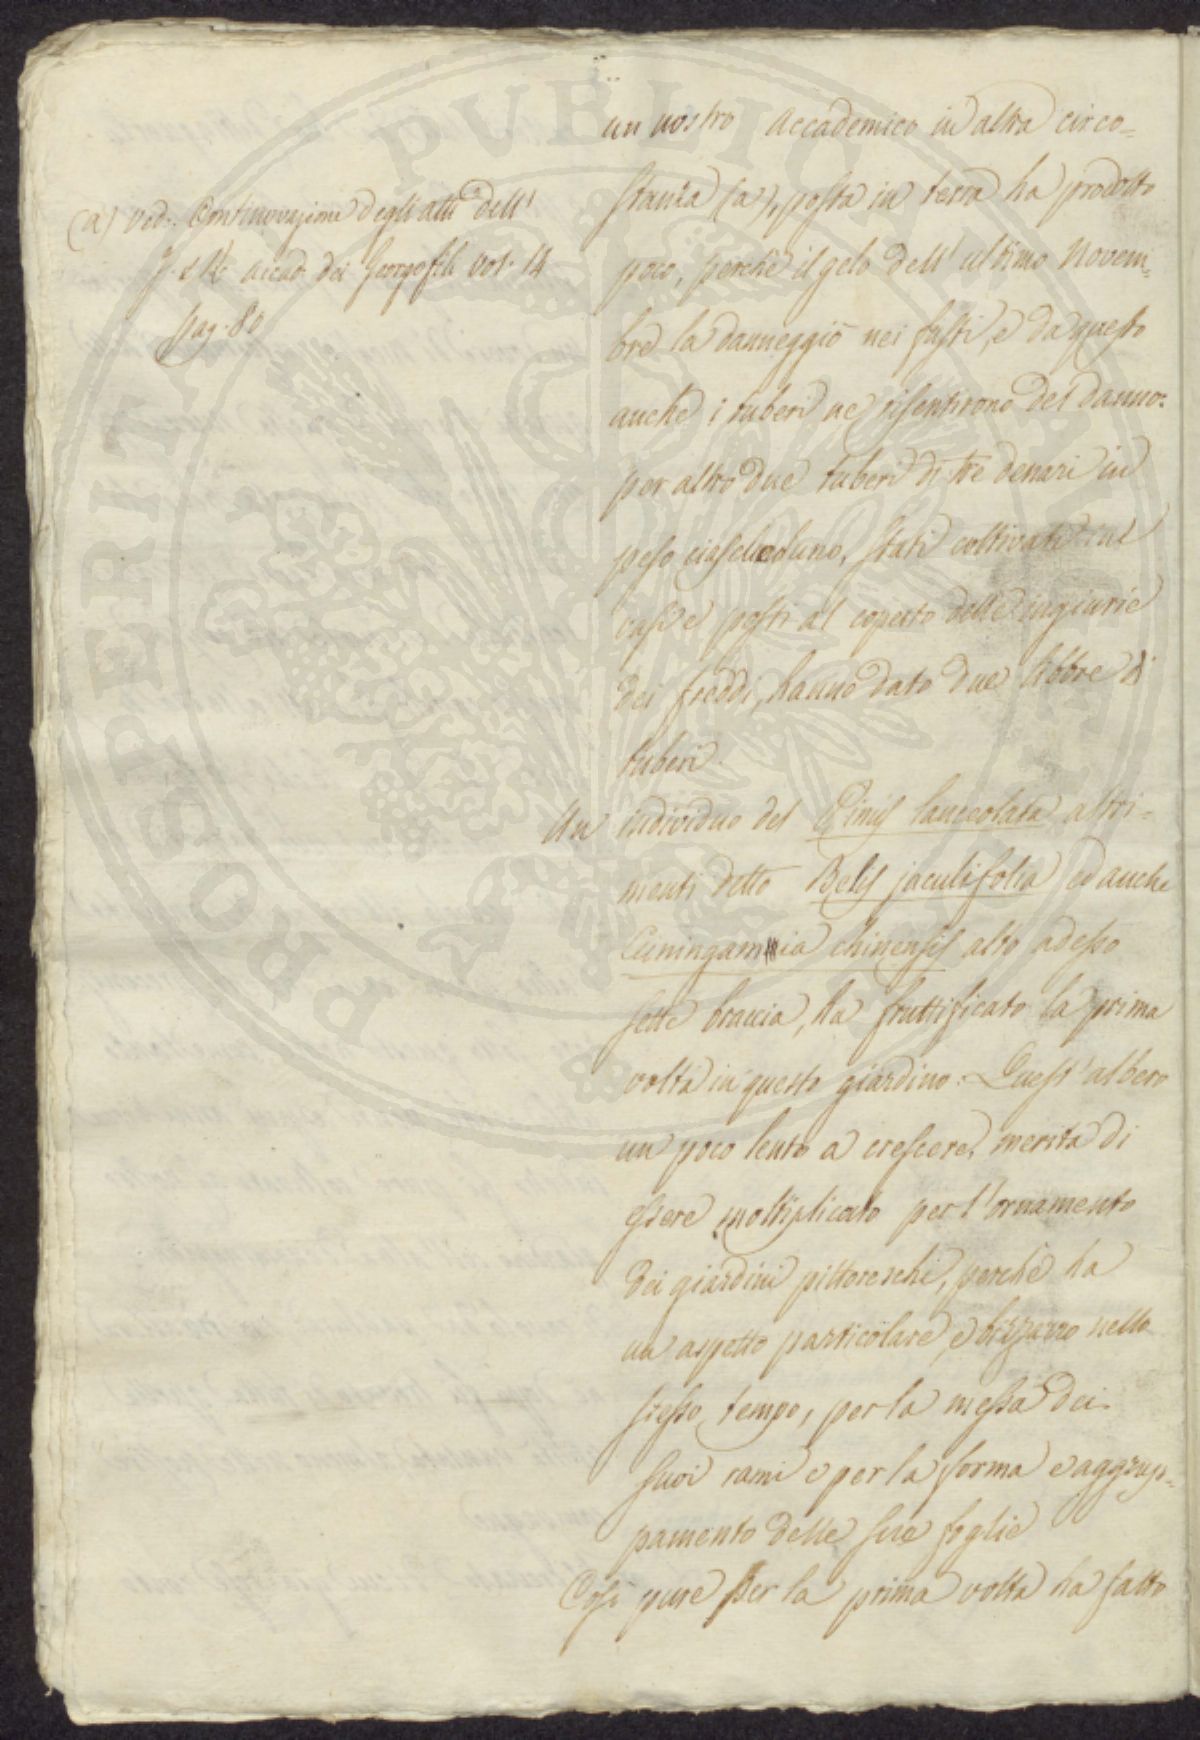 un nostro Accademico in altra circo=
stanza (a), posta in terra ha prodotto
poco, perchè il gelo dell' ultimo Novem=
bre la danneggiò nei fusti, e da questo
anche i tuberi ne risentirono del danno:
per altro due tuberi di tre denari in
peso ciascheduno, stati coltivati in
vasi e posti al coperto delle ingiurie
dei freddi, hanno dato due libbre di
tuberi.
Un individuo del Pinis lanceolata altri=
menti detto Belis jaculifolia ed anche
Cuningamia chinensis alto adesso
sette braccia, ha fruttificato la prima
volta in questo giardino. Quest' albero
un poco lento a crescere, merita di
essere moltiplicato per l'ornamento
dei giardini pittoreschi, perchè ha
un aspetto particolare, e bizzarro nello
stesso tempo, per la messa dei
suoi rami e per la forma e aggrup=
pamento delle sue foglie
Così pure per la prima volta ha fatto
(a) Ved. Continuvazione degli atti dell'
I. e R. Accad. dei Georgofili vol. 14
pag. 80
PROSPERITATI PUBLICAE